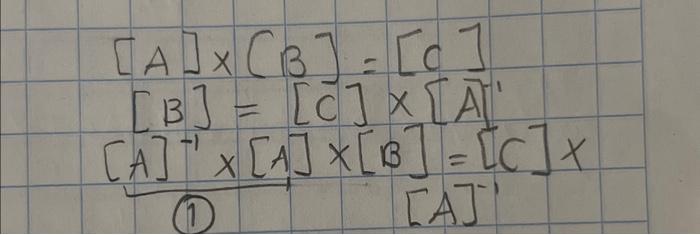 [A] × [B] = [C]
[B] = [C] × [A]⁻¹
[A]⁻¹ × [A] × [B] = [C] ×
① [A]⁻¹